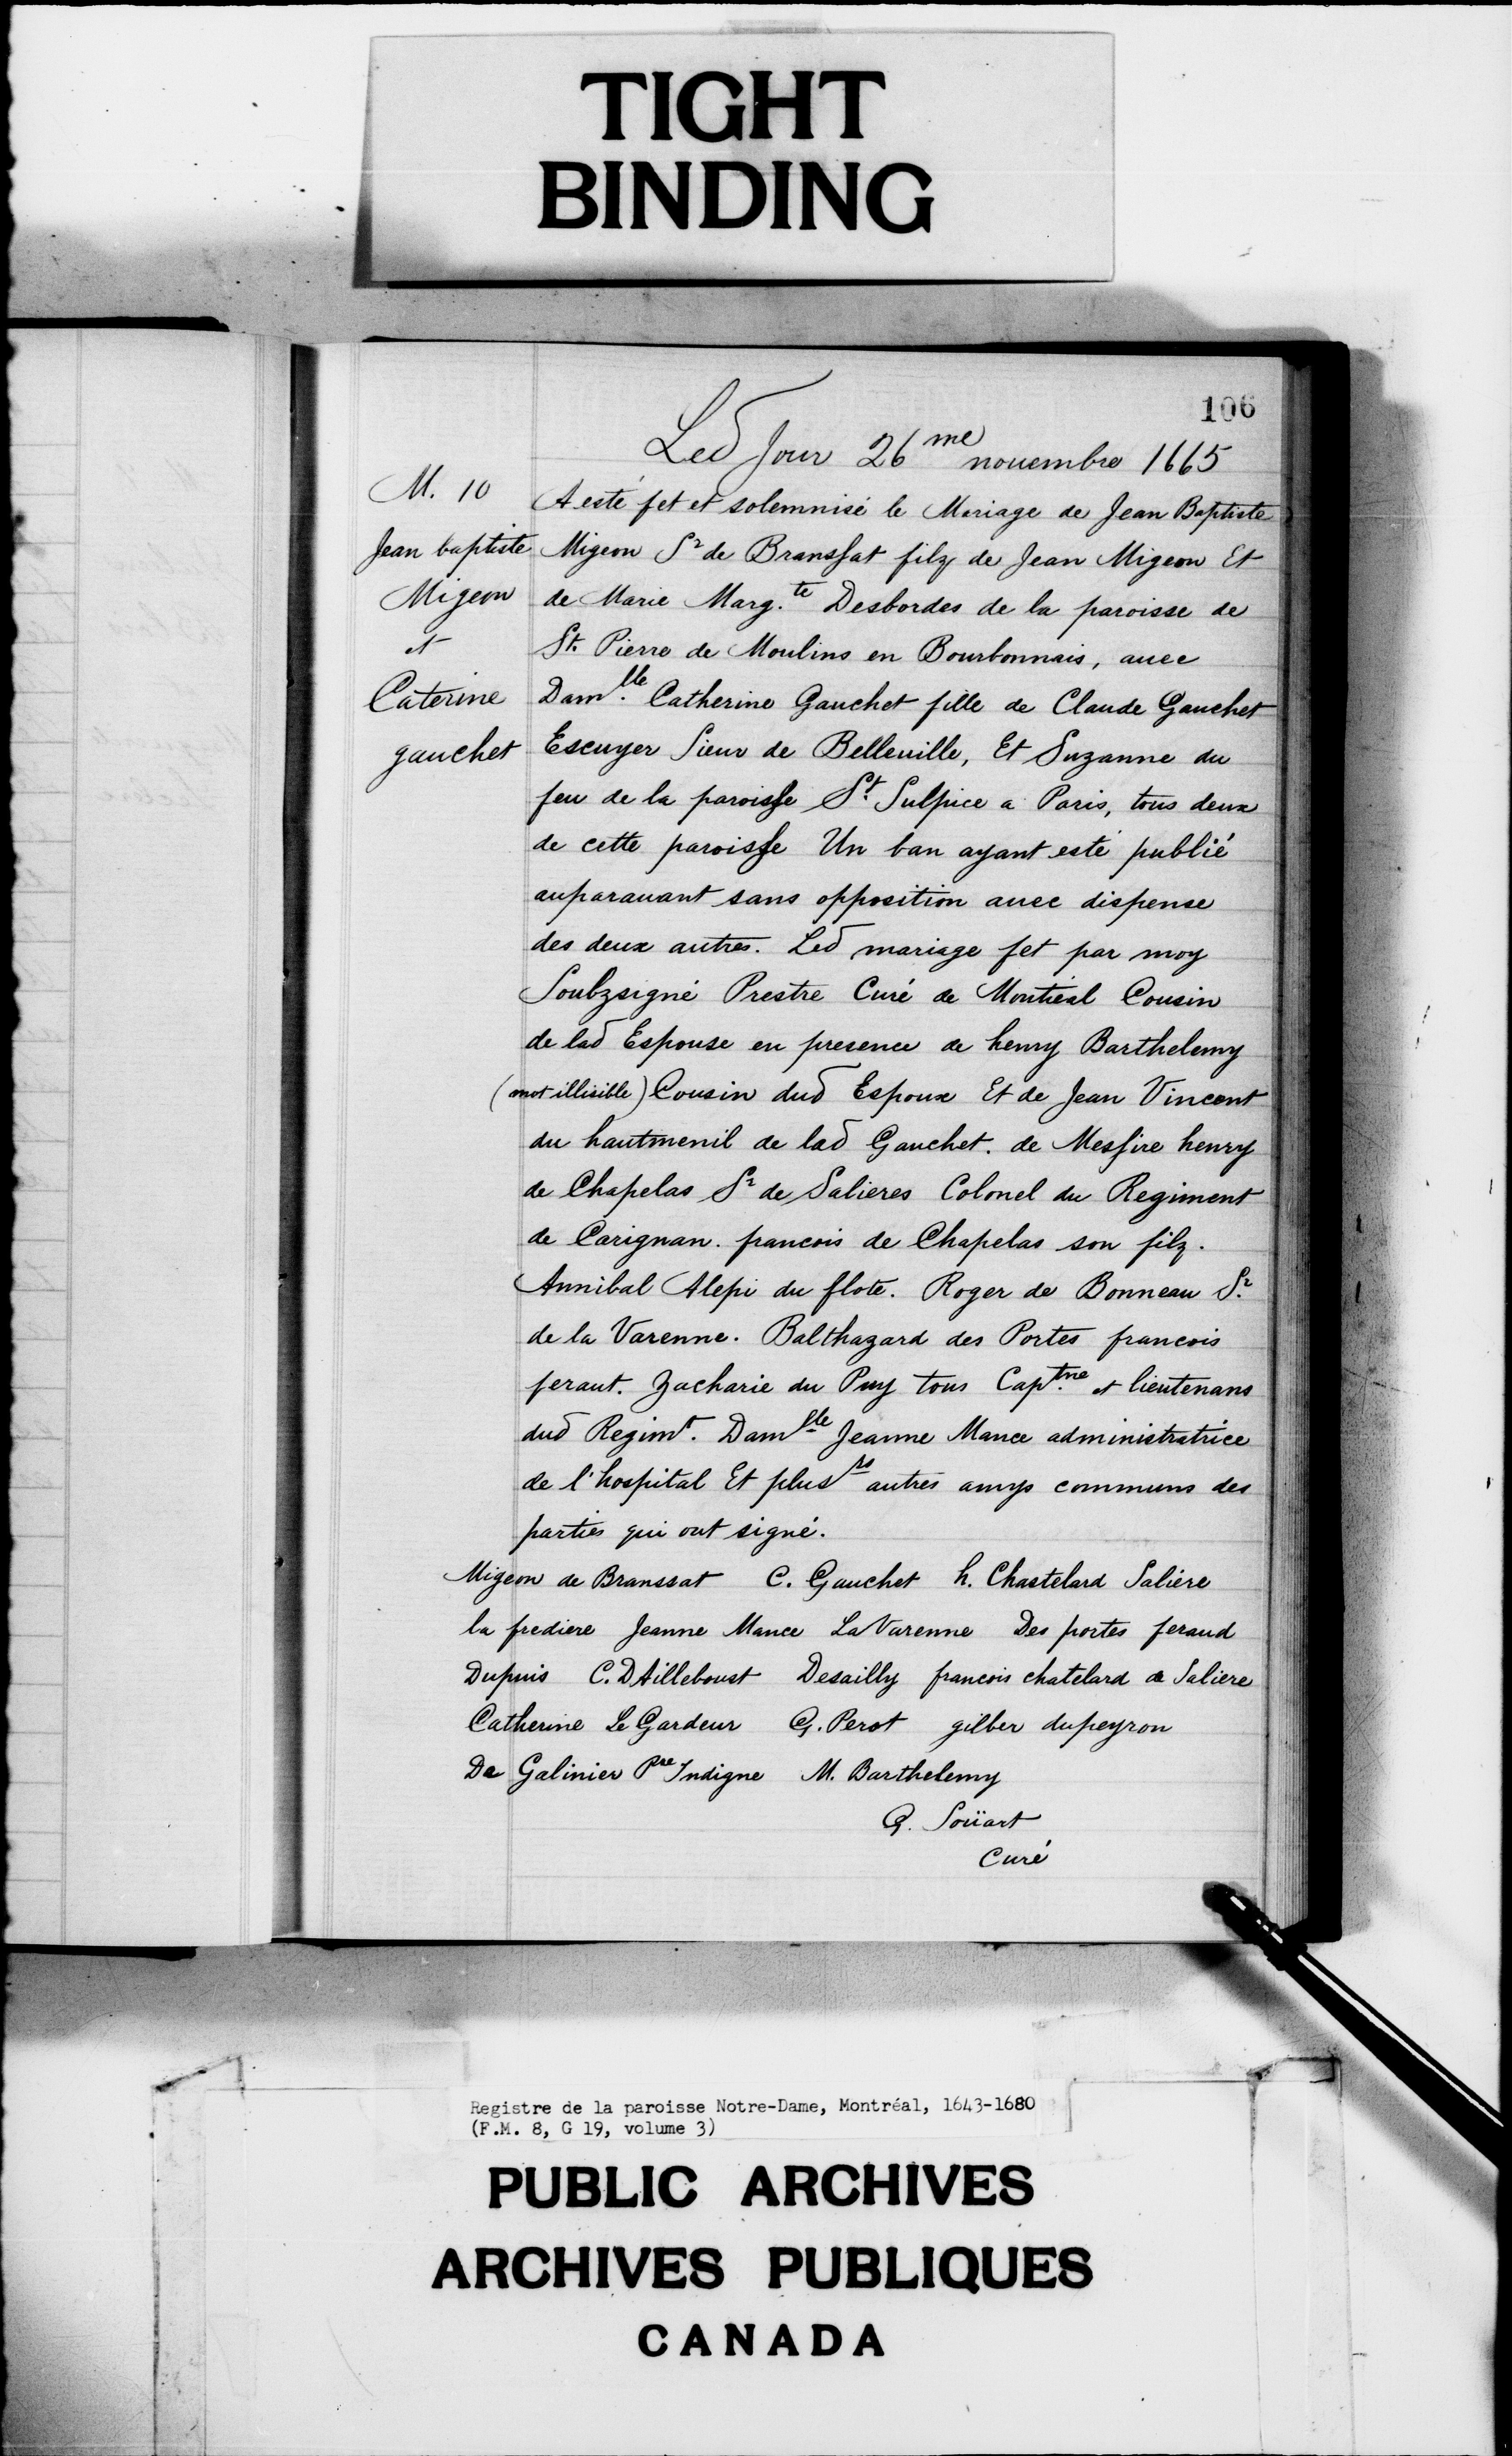 TIGHT
BINDING
106
Led Jour 26me nouembre 1665
M. 10
Jean baptiste
Migeon
et
Caterine
gauchet
A esté fet et solemnisé le Mariage de Jean Baptiste
Migeon Sr de Bransfat filz de Jean Migeon Et
de Marie Marg.te Desbordes de la paroisse de
St. Pierre de Moulins en Bourbonnais, auec
Dam.lle Catherine Gauchet fille de Claude Gauchet
Escuyer Sieur de Belleuille, Et Suzanne du
feu de la paroisse St. Sulpice a Paris, tous deux
de cette paroisse Un ban ayant esté publié
auparauant sans opposition auec dispense
des deux autres. Led mariage fet par moy
Soubzsigné Prestre Curé de Montréal Cousin
de lad Espouse en presence de henry Barthelemy
(mot illisible) Cousin dud Espoux Et de Jean Vincent
du hautmenil de lad Gauchet. de Messire henry
de Chapelas Sr de Salieres Colonel du Regiment
de Carignan. francois de Chapelas son filz.
Annibal Alepi du flote. Roger de Bonneau Sr.
de la Varenne. Balthazard des Portes francois
feraut. Zacharie du Puy tous Cap.tne et lieutenans
dud Regimt. Damlle Jeanne Mance administratrice
de l'hospital Et plusrs autres amys communs des
parties qui ont signé.
Migeon de Branssat C. Gauchet h. Chastelard Saliere
la frediere Jeanne Mance La Varenne Des portes feraud
Dupuis C. DAilleboust Desailly francois chatelard de Saliere
Catherine Le Gardeur G. Perot gilber dupeyron
De Galinier Pre Indigne M. Barthelemy
G. Soüart
Curé
Registre de la paroisse Notre-Dame, Montréal, 1643-1680
(F.M. 8, G 19, volume 3)
PUBLIC ARCHIVES
ARCHIVES PUBLIQUES
CANADA